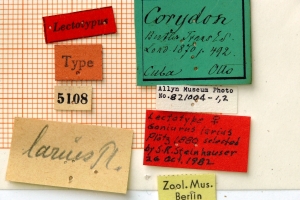 Lectotypus
Type
5108
larius Pl.
Corydon
Cuba Otto
Allyn Museum Photo
No. 821004-1,2
Lectotype ♀
Goniurus larius
Plötz, 1880 selected
by S.R. Steinhauser
26 Oct. 1982
Zool. Mus.
Berlin